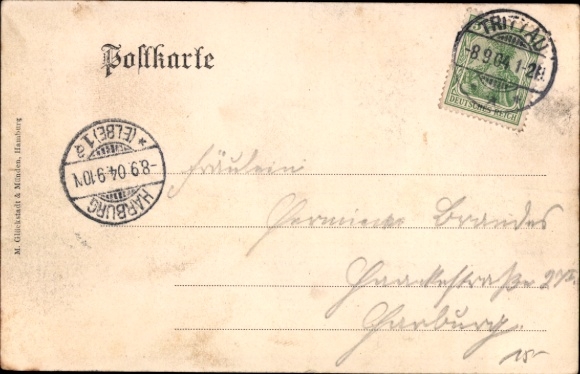 Postkarte
TRITTAU
-8.9.04.1-2N.
DEUTSCHES REICH
HARBURG
-8.9.04.9-10N.
*(ELBE) 1 a
M. Glückstadt & Münden, Hamburg
Fräulein
Hermine Brandes
Haakestraße 27
Harburg.
15